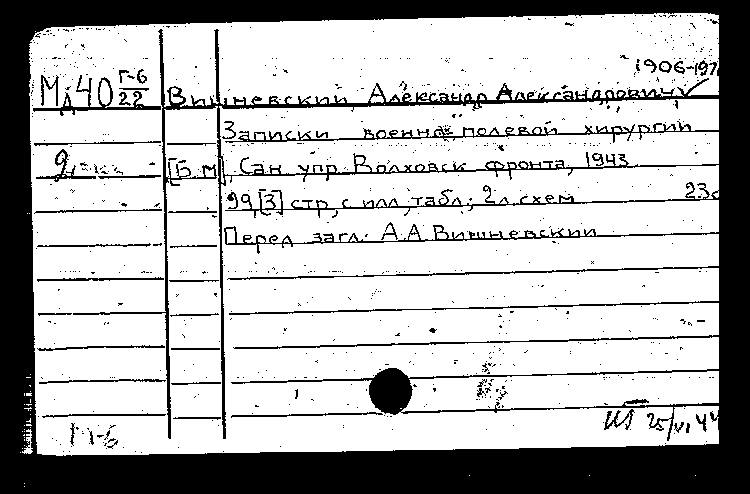 1906-197
Мд40 Г-6/22 Вишневский, Александр Александрович
Записки военно-полевой хирургии
2 [Б.м.], Сан. упр. Волховск. фронта, 1943
99,[3] стр, с илл, табл.; 2 л. схем 23с
Перед загл. А.А. Вишневский
25/VI 44
Г-6